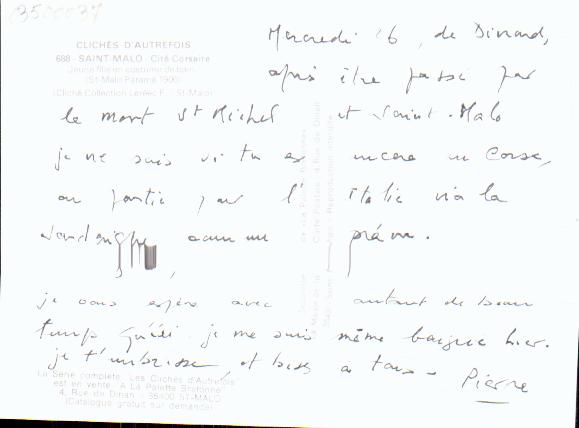 3500037
CLICHÉS D'AUTREFOIS
688 - SAINT-MALO - Cité Corsaire
Jeune fille en costume de bain
(St-Malo Paramé 1900)
(Cliché Collection Leroec F. - St-Malo)
Mercredi 16, de Dinard,
après être passé par
le mont St Michel et Saint-Malo
je ne sais si tu es encore en Corse,
ou partie pour l'Italie via la
Sardaigne comme prévu.
je vous espère avec autant de beau
temps je me suis même baigné hier.
je t'embrasse, et bises à tous -
Pierre
La Série complète "Les Clichés d'Autrefois"
est en vente "A La Palette Bretonne"
4, Rue de Dinan - 35400 ST-MALO
(Catalogue gratuit sur demande)